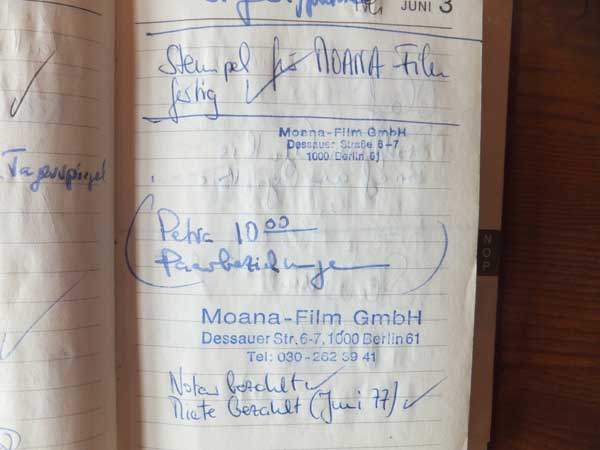 JUNI 3
Stempel für MOANA-Film
fertig
Moana-Film GmbH
Dessauer Straße 6-7
1000 Berlin 61
Tagesspiegel
Petra 10 00
Paarbeziehungen
Moana-Film GmbH
Dessauer Str. 6-7, 1000 Berlin 61
Tel: 030-262 39 41
Notar bezahlt
Miete bezahlt (Juni 77)
N
O
P